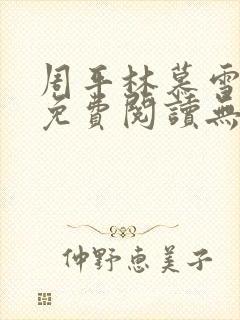 周平林慕雪
免費閱讀無
仲野恵美子